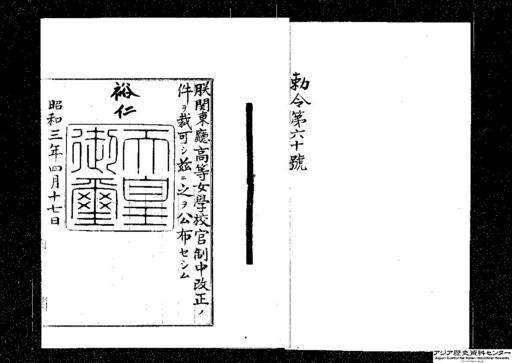 勅令第六十號
朕関東廳高等女學校官制中改正ノ
件ヲ裁可シ茲ニ之ヲ公布セシム
裕仁
天皇
御璽
昭和三年四月十七日
アジア歴史資料センター
Japan Center for Asian Historical Records